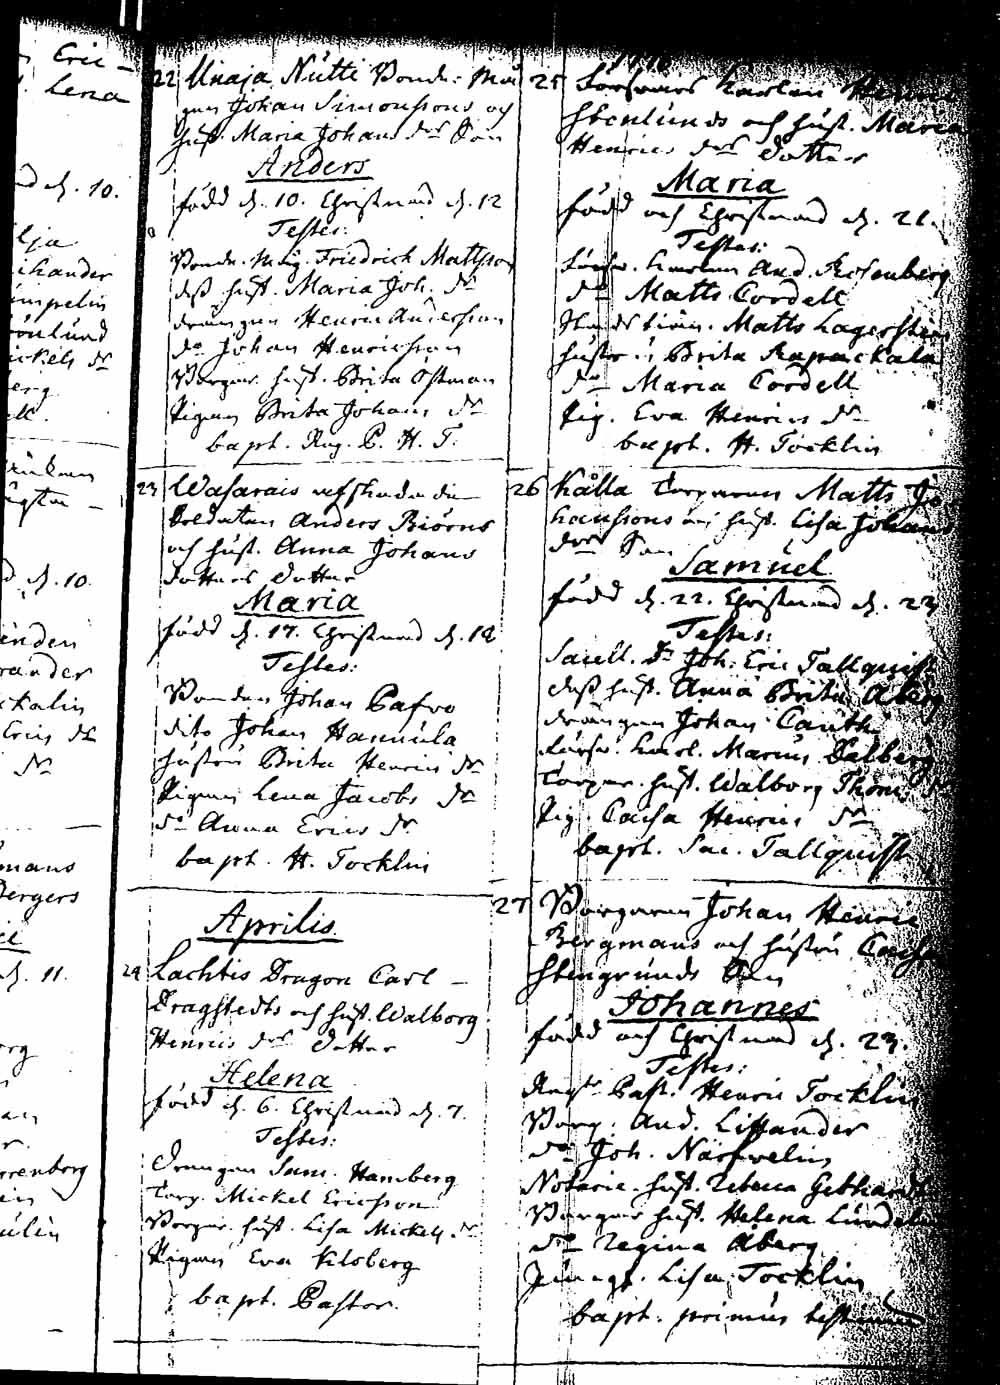 Eric –
Lena
d. 10.
lja
ihander
impelin
önlund
ickels dr
berg
ell.
d. 10.
inden
rander
ckalin
Erics dr
dr
mans
bergers
d. 11.
rg
an
r.
rrenborg
ulin
22 Unaja Nütti Bonde: Må
gen Johan Simonssons och
hust. Maria Johans drs Son
Anders
född d. 10. Christnad d. 12
Testes:
Bonde. Måg. Friedrich Mattsson
dess hust. Maria Joh. dr
drängen Henric Andersson
do Johan Henricsson
Borgar. hust. Brita Östman
Pigan Brita Johans dr
bapt. Reg. P. H. T.
23 Wasarais afskedade
Soldaten Anders Biörns
och hust. Anna Johans
dotters dotter
Maria
född d. 17. Christnad d. 18
Testes:
Bonden Johan Pafvo
dito Johan Hannula
hustru Brita Henrics dr
Pigan Lena Jacobs dr
do Anna Erics dr
bapt. H. Tocklin
Aprilis.
24 Lachtis Dragon Carl –
Dragstedts och hust. Walborg
Henrics drs dotter
Helena
född d. 6. Christnad d. 7.
Testes:
Drängen Sam. Hamberg
Torp. Mickel Ericsson
Borgar. hust. Lisa Mickels. dr
Pigan Eva Kloberg
bapt. Pastor.
25 Försvars karlen
Stenlunds och hust. Maria
Henrics drs dotter
Maria
född och Christnad d. 21.
Testes:
Försv. karlen And. Rosenberg
do Matts Cordell
Matts Lagerström
hustru Brita Rapackala
do Maria Cordell
Pig. Eva Henrics dr
bapt. H. Tocklin
26 Kålla Torparen Matts Jo
hanssons och hust. Lisa Johans
drs Son
Samuel
född d. 22. Christnad d. 23
Testes:
Sacell. Dn Joh: Eric Tallquist
dess hust. Anna Brita Åberg
drängen Johan Canth
Försv. karl. Marcus Dalberg
Torpar. hust. Walborg Thom. dr
Pig. Caisa Henrics dr
bapt. Sac. Tallquist
27 Borgaren Johan Henric
Bergmans och hustru Caisa
Stengrunds Son
Johannes
född och Christnad d. 23.
Testes:
Past. Henric Tocklin
Borg. And. Lissander
do Joh. Närfvelin
Notarie. hust. Rebecca Gebhardt
Borgar hust. Helena
do Regina Åberg
Jungf. Lisa Tocklin
bapt. primus testium